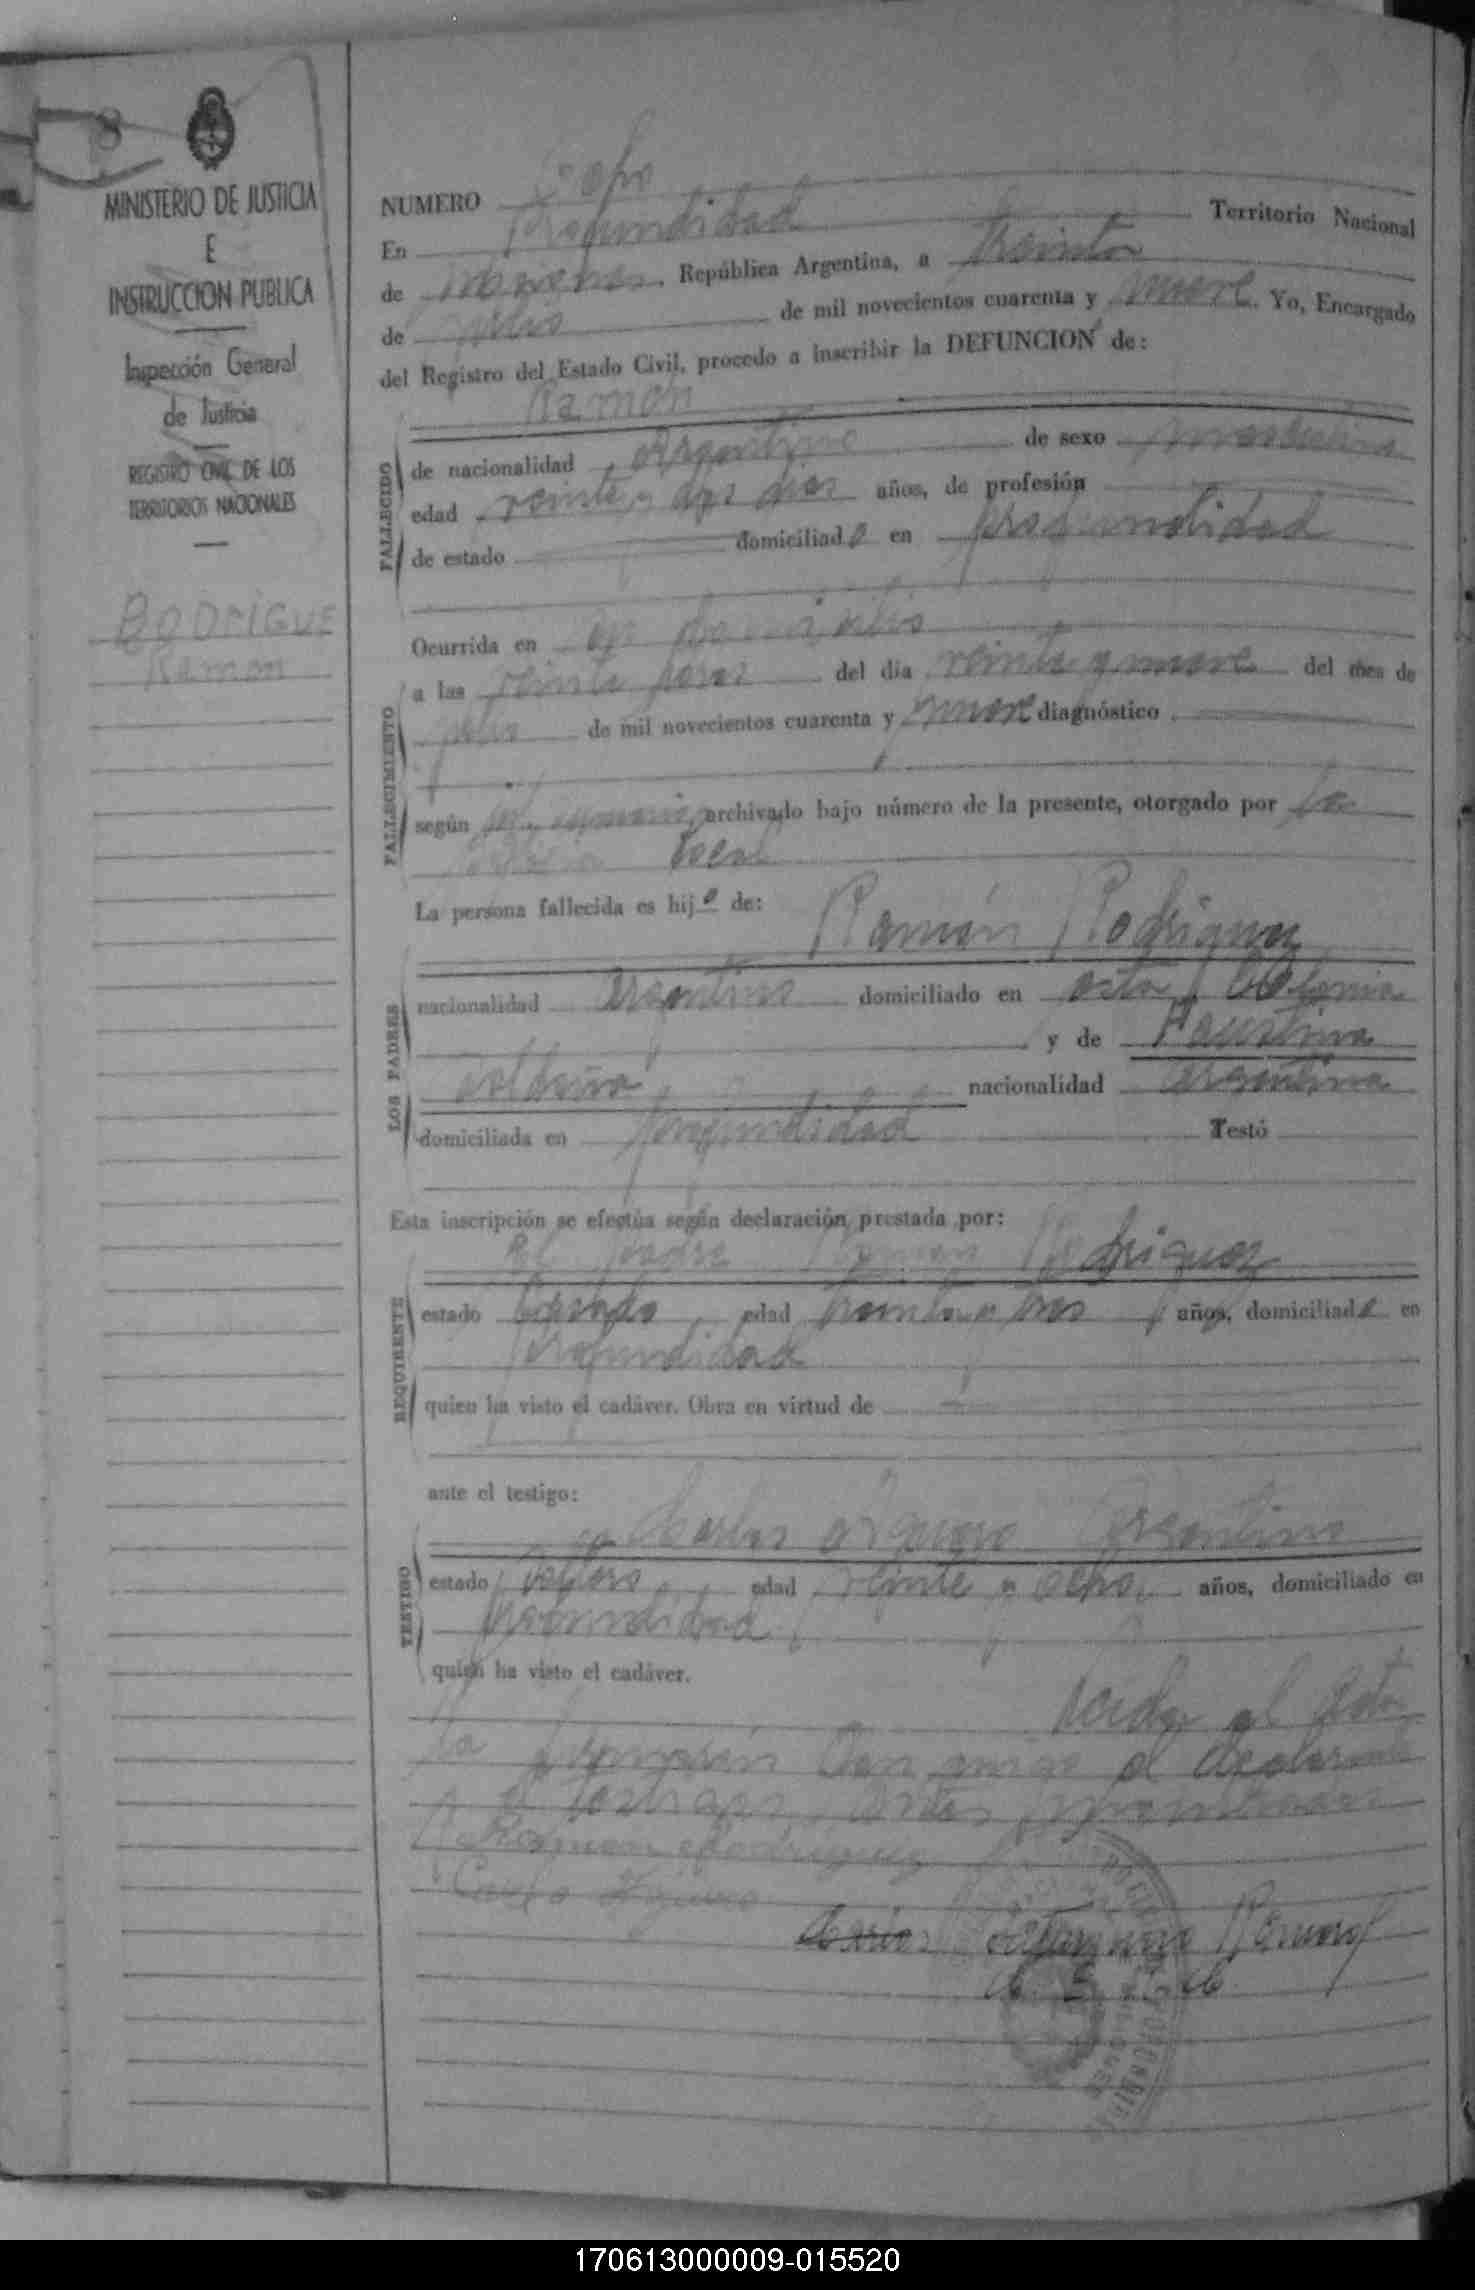 8
MINISTERIO DE JUSTICIA
E
INSTRUCCION PUBLICA
Inspección General
de Justicia
REGISTRO CIVIL DE LOS
TERRITORIOS NACIONALES
RODRIGUE
Ramón
NUMERO Ocho
En Profundidad Territorio Nacional
de Misiones República Argentina, a treinta
de julio de mil novecientos cuarenta y nueve. Yo, Encargado
del Registro del Estado Civil, procedo a inscribir la DEFUNCION de:
Ramón
FALLECIDO
de nacionalidad Argentino de sexo masculino
edad veinte y dos dias años, de profesión
de estado domiciliado en profundidad
Ocurrida en su domicilio
FALLECIMIENTO
a las veinte horas del día veinte y nueve del mes de
julio de mil novecientos cuarenta y nueve diagnóstico
según archivado bajo número de la presente, otorgado por la
local
La persona fallecida es hijo de:
Ramón Rodriguez
LOS PADRES
nacionalidad argentino domiciliado en esta Colonia
y de Faustina
nacionalidad argentina
domiciliada en profundidad Testó
Esta inscripción se efectúa según declaración prestada por:
El padre Ramón Rodriguez
REQUIRENTE
estado Casado edad treinta y tres años, domiciliado en
profundidad
quien ha visto el cadáver. Obra en virtud de
ante el testigo:
Carlos Argentino
TESTIGO
estado soltero edad veinte y ocho años, domiciliado en
profundidad
quien ha visto el cadáver.
Leida el acta
la firman con migo el declarante
y testigos
Ramon Rodriguez
Carlo
Carlos
170613000009-015520